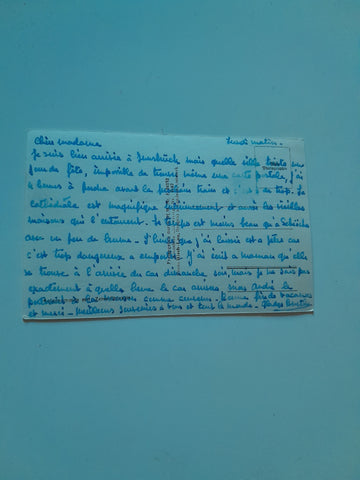 Chère madame Lundi matin.-
Je suis bien arrivée à Innsbrück mais quelle ville triste un
jour de fête, impossible de trouver même une carte postale, j'ai
4 heures à perdre avant le prochain train et c'est trop. La
cathédrale est magnifique et aussi les vieilles
maisons qui l'entourent. Le temps est moins beau qu'à
avec un peu de brume. - que j'ai laissé est a
c'est trop dangereux a emporter. J'ai écrit a maman qu'elle
se trouve à l'arrivée du car dimanche, soir mais je ne sais pas
exactement à quelle heure le car arrive, mais André la
Bonne fin de vacances
et merci - Meilleurs souvenirs à vous et tout le monde -